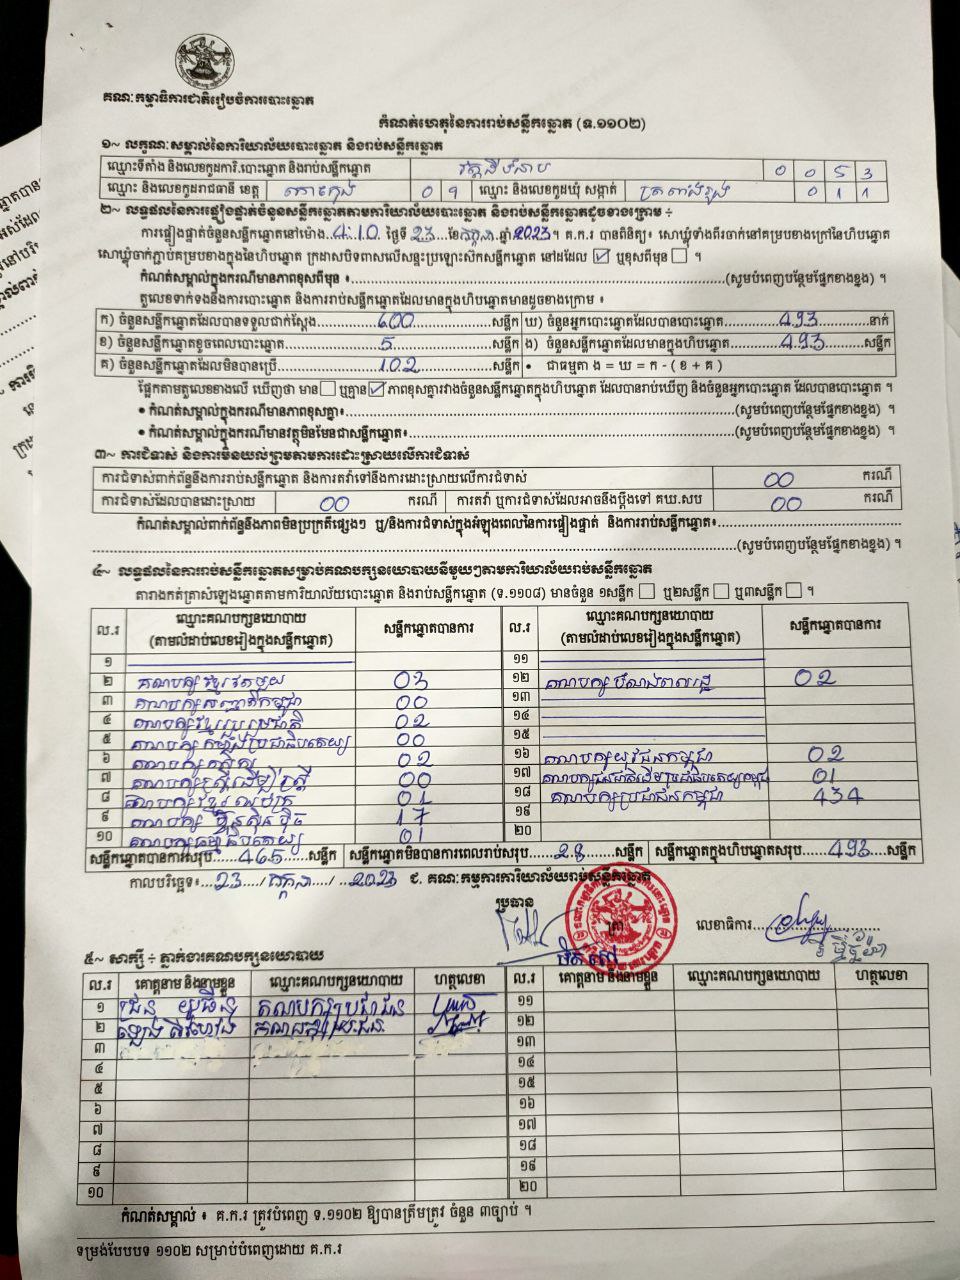 គណៈកម្មាធិការជាតិរៀបចំការបោះឆ្នោត
កំណត់ហេតុនៃការរាប់សន្លឹកឆ្នោត (ទ.១១០២)
១~ លក្ខណៈសម្គាល់នៃការិយាល័យបោះឆ្នោត និងរាប់សន្លឹកឆ្នោត
ឈ្មោះទីតាំង និងលេខកូដការិ.បោះឆ្នោត និងរាប់សន្លឹកឆ្នោត 0 0 5 3
ឈ្មោះ និងលេខកូដរាជធានី ខេត្ត កោះកុង 0 9 ឈ្មោះ និងលេខកូដឃុំ សង្កាត់ ត្រពាំងរូង 0 1 1
២~ លទ្ធផលនៃការផ្ទៀងផ្ទាត់ចំនួនសន្លឹកឆ្នោតតាមការិយាល័យបោះឆ្នោត និងរាប់សន្លឹកឆ្នោតដូចខាងក្រោម ÷
ការផ្ទៀងផ្ទាត់ចំនួនសន្លឹកឆ្នោតនៅម៉ោង 4:10 ថ្ងៃទី 23 ខែ កក្កដា ឆ្នាំ 2023។ គ.ក.រ បានពិនិត្យ៖ សោឃ្លុំទាំងពីរចាក់នៅគម្របខាងក្រៅនៃហិបឆ្នោត
សោឃ្លុំចាក់ភ្ជាប់គម្របខាងក្នុងនៃហិបឆ្នោត ក្រដាសបិទពាសលើសន្ទះប្រឡោះស៊កសន្លឹកឆ្នោត នៅដដែល ☑ ឬខុសពីមុន ☐ ។
កំណត់សម្គាល់ក្នុងករណីមានភាពខុសពីមុន ៖ (សូមបំពេញបន្ថែមផ្នែកខាងខ្នង) ។
តួលេខទាក់ទងនឹងការបោះឆ្នោត និងការរាប់សន្លឹកឆ្នោតដែលមានក្នុងហិបឆ្នោតមានដូចខាងក្រោម ៖
ក) ចំនួនសន្លឹកឆ្នោតដែលបានទទួលជាក់ស្តែង 600 សន្លឹក ឃ) ចំនួនអ្នកបោះឆ្នោតដែលបានបោះឆ្នោត 493 នាក់
ខ) ចំនួនសន្លឹកឆ្នោតខូចពេលបោះឆ្នោត 5 សន្លឹក ង) ចំនួនសន្លឹកឆ្នោតដែលមានក្នុងហិបឆ្នោត 493 សន្លឹក
គ) ចំនួនសន្លឹកឆ្នោតដែលមិនបានប្រើ 102 សន្លឹក • ជាធម្មតា ង = ឃ = ក - ( ខ + គ )
ផ្អែកតាមតួលេខខាងលើ ឃើញថា មាន ☐ ឬគ្មាន ☑ ភាពខុសគ្នារវាងចំនួនសន្លឹកឆ្នោតក្នុងហិបឆ្នោត ដែលបានរាប់ឃើញ និងចំនួនអ្នកបោះឆ្នោត ដែលបានបោះឆ្នោត ។
• កំណត់សម្គាល់ក្នុងករណីមានភាពខុសគ្នា៖ (សូមបំពេញបន្ថែមផ្នែកខាងខ្នង) ។
• កំណត់សម្គាល់ក្នុងករណីមានវត្ថុមិនមែនជាសន្លឹកឆ្នោត៖ (សូមបំពេញបន្ថែមផ្នែកខាងខ្នង) ។
៣~ ការជំទាស់ និងការមិនយល់ព្រមតាមការដោះស្រាយលើការជំទាស់
ការជំទាស់ពាក់ព័ន្ធនឹងការរាប់សន្លឹកឆ្នោត និងការតវ៉ាទៅនឹងការដោះស្រាយលើការជំទាស់ 00 ករណី
ការជំទាស់ដែលបានដោះស្រាយ 00 ករណី ការតវ៉ា ឬការជំទាស់ដែលអាចនឹងប្តឹងទៅ គឃ.សប 00 ករណី
កំណត់សម្គាល់ពាក់ព័ន្ធនឹងភាពមិនប្រក្រតីផ្សេងៗ ឬ/និងការជំទាស់ក្នុងអំឡុងពេលនៃការផ្ទៀងផ្ទាត់ និងការរាប់សន្លឹកឆ្នោត៖
(សូមបំពេញបន្ថែមផ្នែកខាងខ្នង) ។
៤~ លទ្ធផលនៃការរាប់សន្លឹកឆ្នោតសម្រាប់គណបក្សនយោបាយនីមួយៗតាមការិយាល័យរាប់សន្លឹកឆ្នោត
តារាងកត់ត្រាសំឡេងឆ្នោតតាមការិយាល័យបោះឆ្នោត និងរាប់សន្លឹកឆ្នោត (ទ.១១០៨) មានចំនួន ១សន្លឹក ☐ ឬ២សន្លឹក ☐ ឬ៣សន្លឹក ☐ ។
ល.រ ឈ្មោះគណបក្សនយោបាយ (តាមលំដាប់លេខរៀងក្នុងសន្លឹកឆ្នោត) សន្លឹកឆ្នោតបានការ ល.រ ឈ្មោះគណបក្សនយោបាយ (តាមលំដាប់លេខរៀងក្នុងសន្លឹកឆ្នោត) សន្លឹកឆ្នោតបានការ
១ ១១
២ គណបក្ស ខ្មែរតែមួយ 03 ១២ គណបក្ស បំណងពលរដ្ឋ 02
៣ គណបក្សសញ្ជាតិកម្ពុជា 00 ១៣
៤ គណបក្សខ្មែររួបរួមជាតិ 02 ១៤
៥ គណបក្ស កម្លាំងប្រជាធិបតេយ្យ 00 ១៥
៦ គណបក្សកសិករ 02 ១៦ គណបក្សយុវជនកម្ពុជា 02
៧ គណបក្សស្ត្រីដើម្បីស្ត្រី 00 ១៧ គណបក្សជនជាតិដើមប្រជាធិបតេយ្យកម្ពុជា 01
៨ គណបក្សខ្មែរ 01 ១៨ គណបក្សប្រជាជនកម្ពុជា 434
៩ គណបក្ស ហ៊្វុនស៊ិនប៉ិច 17 ១៩
១០ គណបក្សធម្មាធិបតេយ្យ 01 ២០
សន្លឹកឆ្នោតបានការសរុប 465 សន្លឹក សន្លឹកឆ្នោតមិនបានការពេលរាប់សរុប 28 សន្លឹក សន្លឹកឆ្នោតក្នុងហិបឆ្នោតសរុប 493 សន្លឹក
កាលបរិច្ឆេទ៖ 23 / កក្កដា / 2023 ជ. គណៈកម្មការការិយាល័យរាប់សន្លឹកឆ្នោត
ប្រធាន ត្រា លេខាធិការ
៥~ សាក្សី ÷ ភ្នាក់ងារគណបក្សនយោបាយ
ល.រ គោត្តនាម និងនាមខ្លួន ឈ្មោះគណបក្សនយោបាយ ហត្ថលេខា ល.រ គោត្តនាម និងនាមខ្លួន ឈ្មោះគណបក្សនយោបាយ ហត្ថលេខា
១ គណបក្សប្រជាជន ១១
២ គណបក្សប្រជាជន ១២
៣ ១៣
៤ ១៤
៥ ១៥
៦ ១៦
៧ ១៧
៨ ១៨
៩ ១៩
១០ ២០
កំណត់សម្គាល់ ៖ គ.ក.រ ត្រូវបំពេញ ទ.១១០២ ឱ្យបានត្រឹមត្រូវ ចំនួន ៣ច្បាប់ ។
ទម្រង់បែបបទ ១១០២ សម្រាប់បំពេញដោយ គ.ក.រ